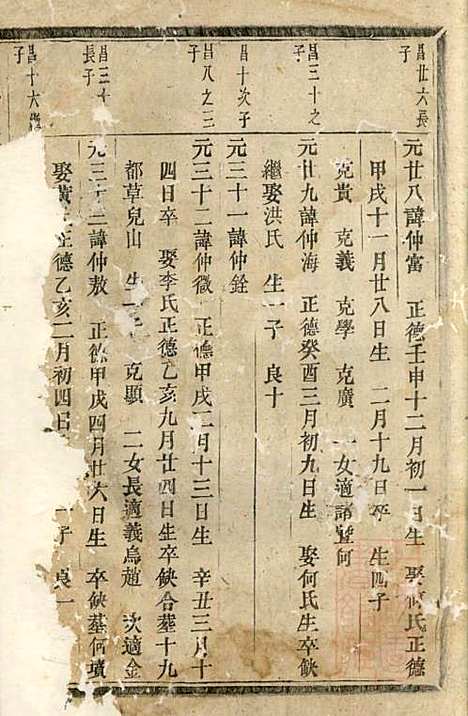 昌廿六長子
元廿八諱仲富 正德壬申十二月初一日生 娶何氏正德
甲戌十一月廿八日生 二月十九日卒 生四子
克貴 克義 克學 克廣 一女適諸暨何
昌三十之子
元廿九諱仲海 正德癸酉三月初九日生 娶何氏生卒缺
繼娶洪氏 生一子 良十
昌十次子
元三十一諱仲銓
昌八之三子
元三十二諱仲微 正德甲戌二月十三日生 辛丑三月十
四日卒 娶李氏正德乙亥九月廿四日生卒缺合塟十九
都草兒山 生一子 克顯 二女長適義烏趙 次適金
昌三十長子
元三十三諱仲敖 正德甲戌四月廿六日生 卒缺墓何墳
娶黃 正德乙亥二月初四日 一子 良一
昌十六 子